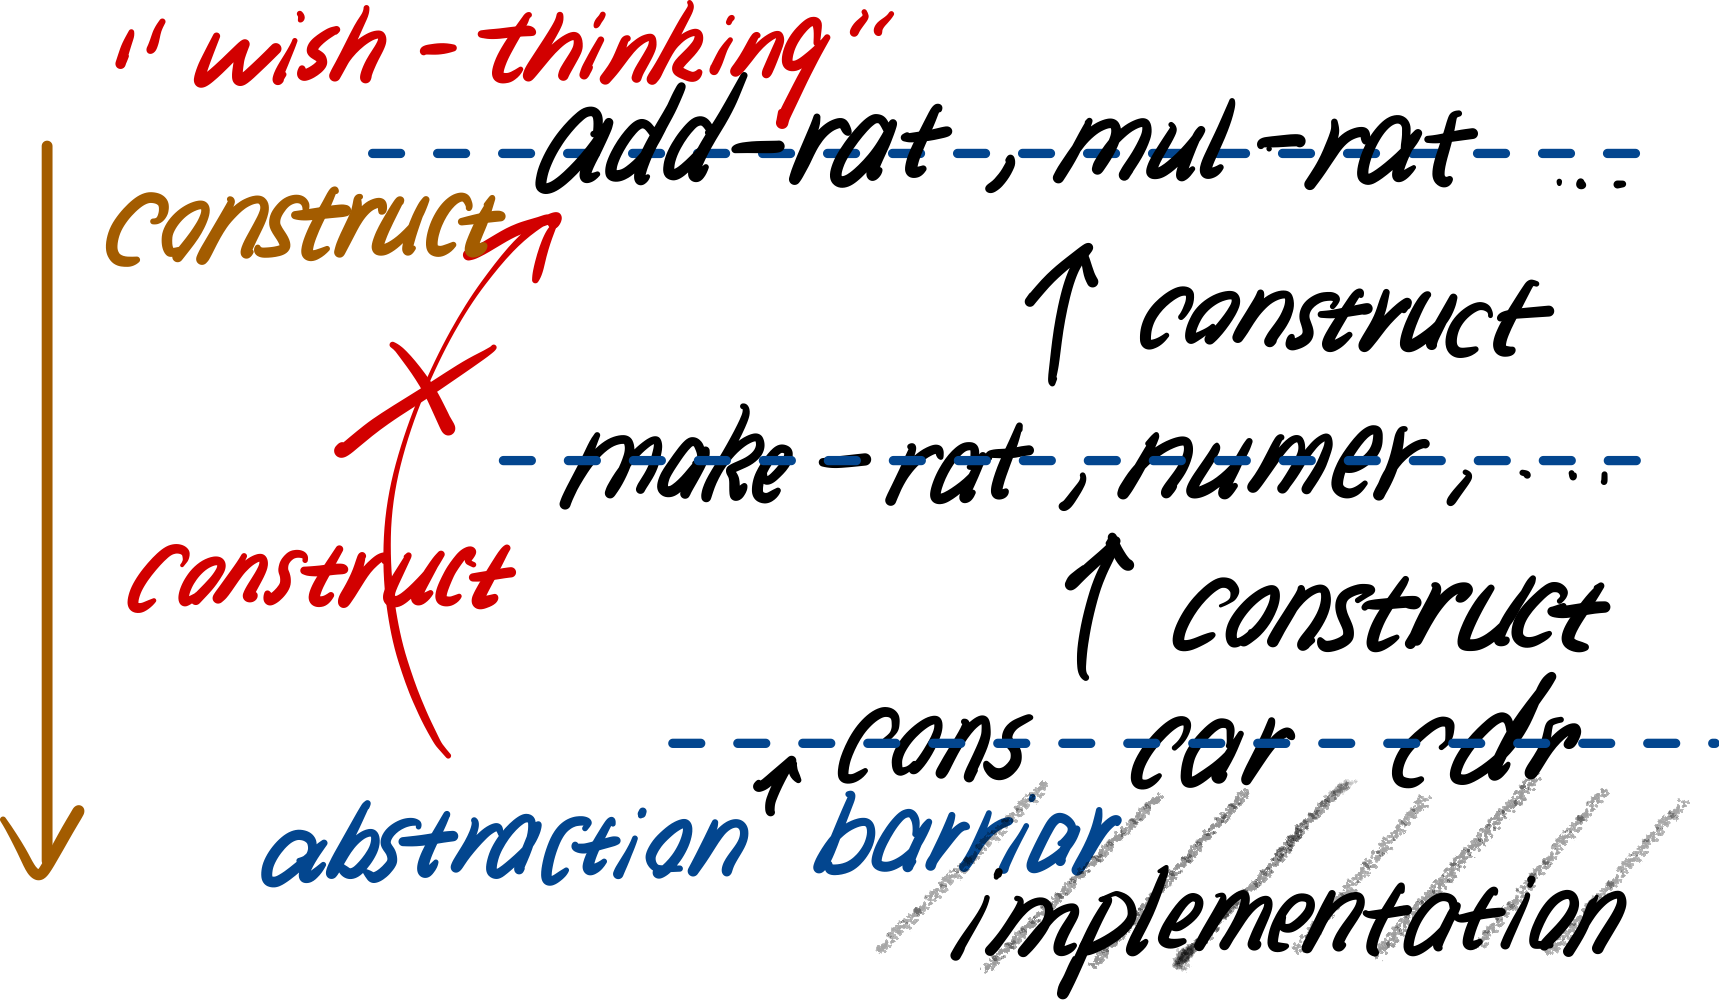 "wish-thinking"
add-rat, mul-rat ...
construct
construct
make-rat, numer, ...
construct
construct
cons car cdr
abstraction barriar
implementation